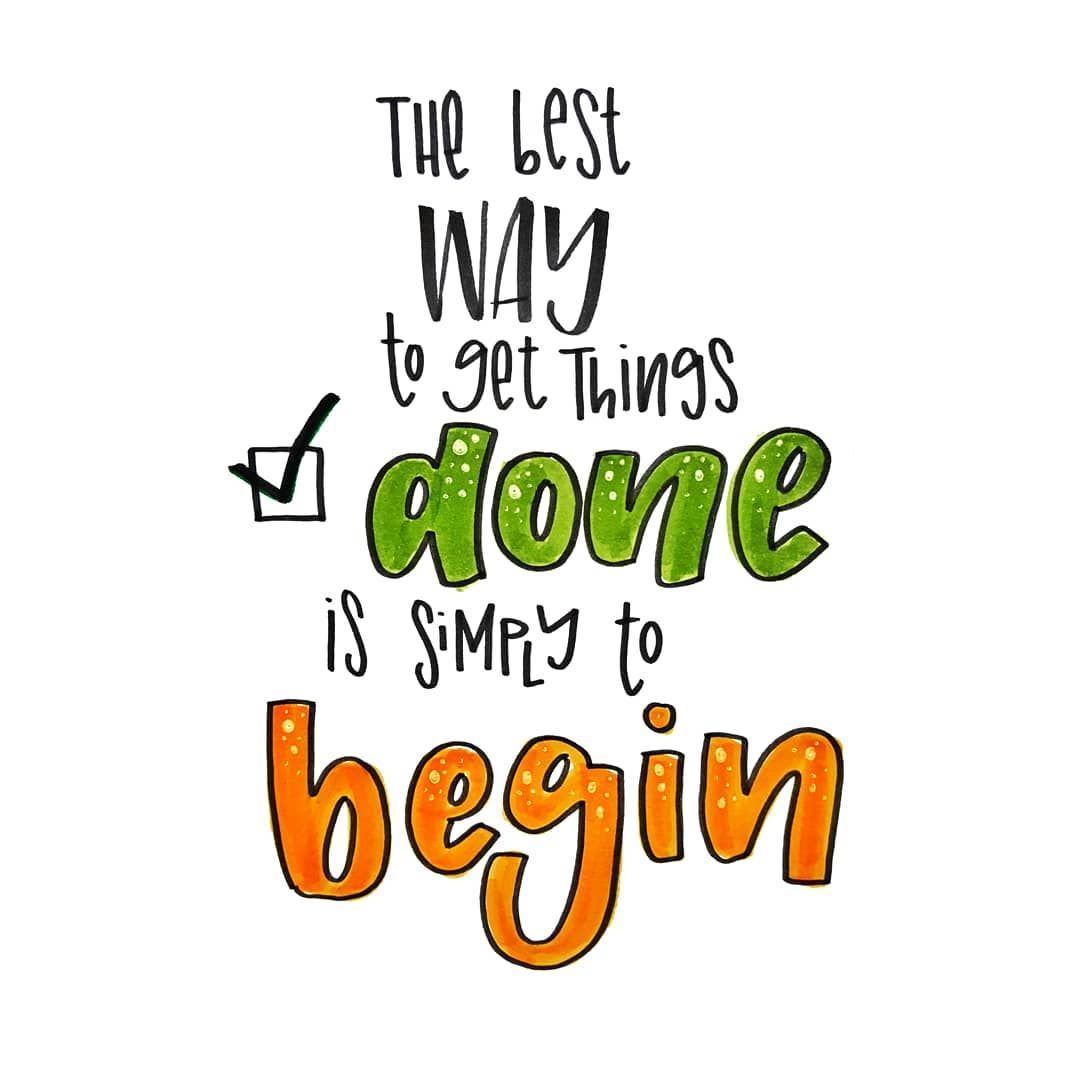 THe best
WAY
to get Things
done
is SiMPLY to
begin